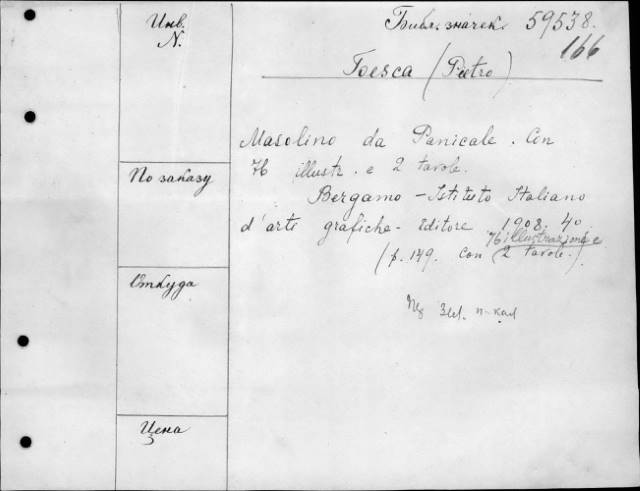 Инв.
N.
Библ. значек 59538.
166
Toesca (Pietro)
Masolino da Panicale. Con
76 illustr. e 2 tavole.
По заказу
Bergamo - Istituto Italiano
d'arti grafiche - Editore 1908. 4º.
76 illustrazioni e
(p. 149. con 2 tavole.)
Откуда
Цена